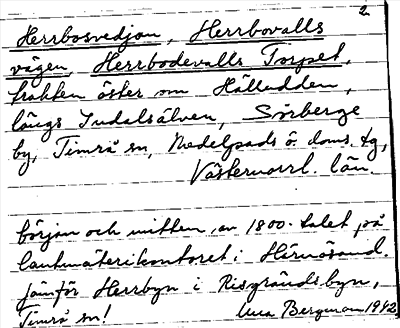 2
Herrbosvedjan, Herrbovalls
vägen, Herrbodevalls Torpet,
trakten öster om Hälludden,
längs Indalsälven, Sörberge
by, Timrå sn, Medelpads ö. doms. tg,
Västernorrl. län.
början och mitten av 1800-talet på
lantmäterikontoret i Härnösand.
Jämför Herrbyn i Risgrändsbyn,
Timrå sn! Bergman 1942